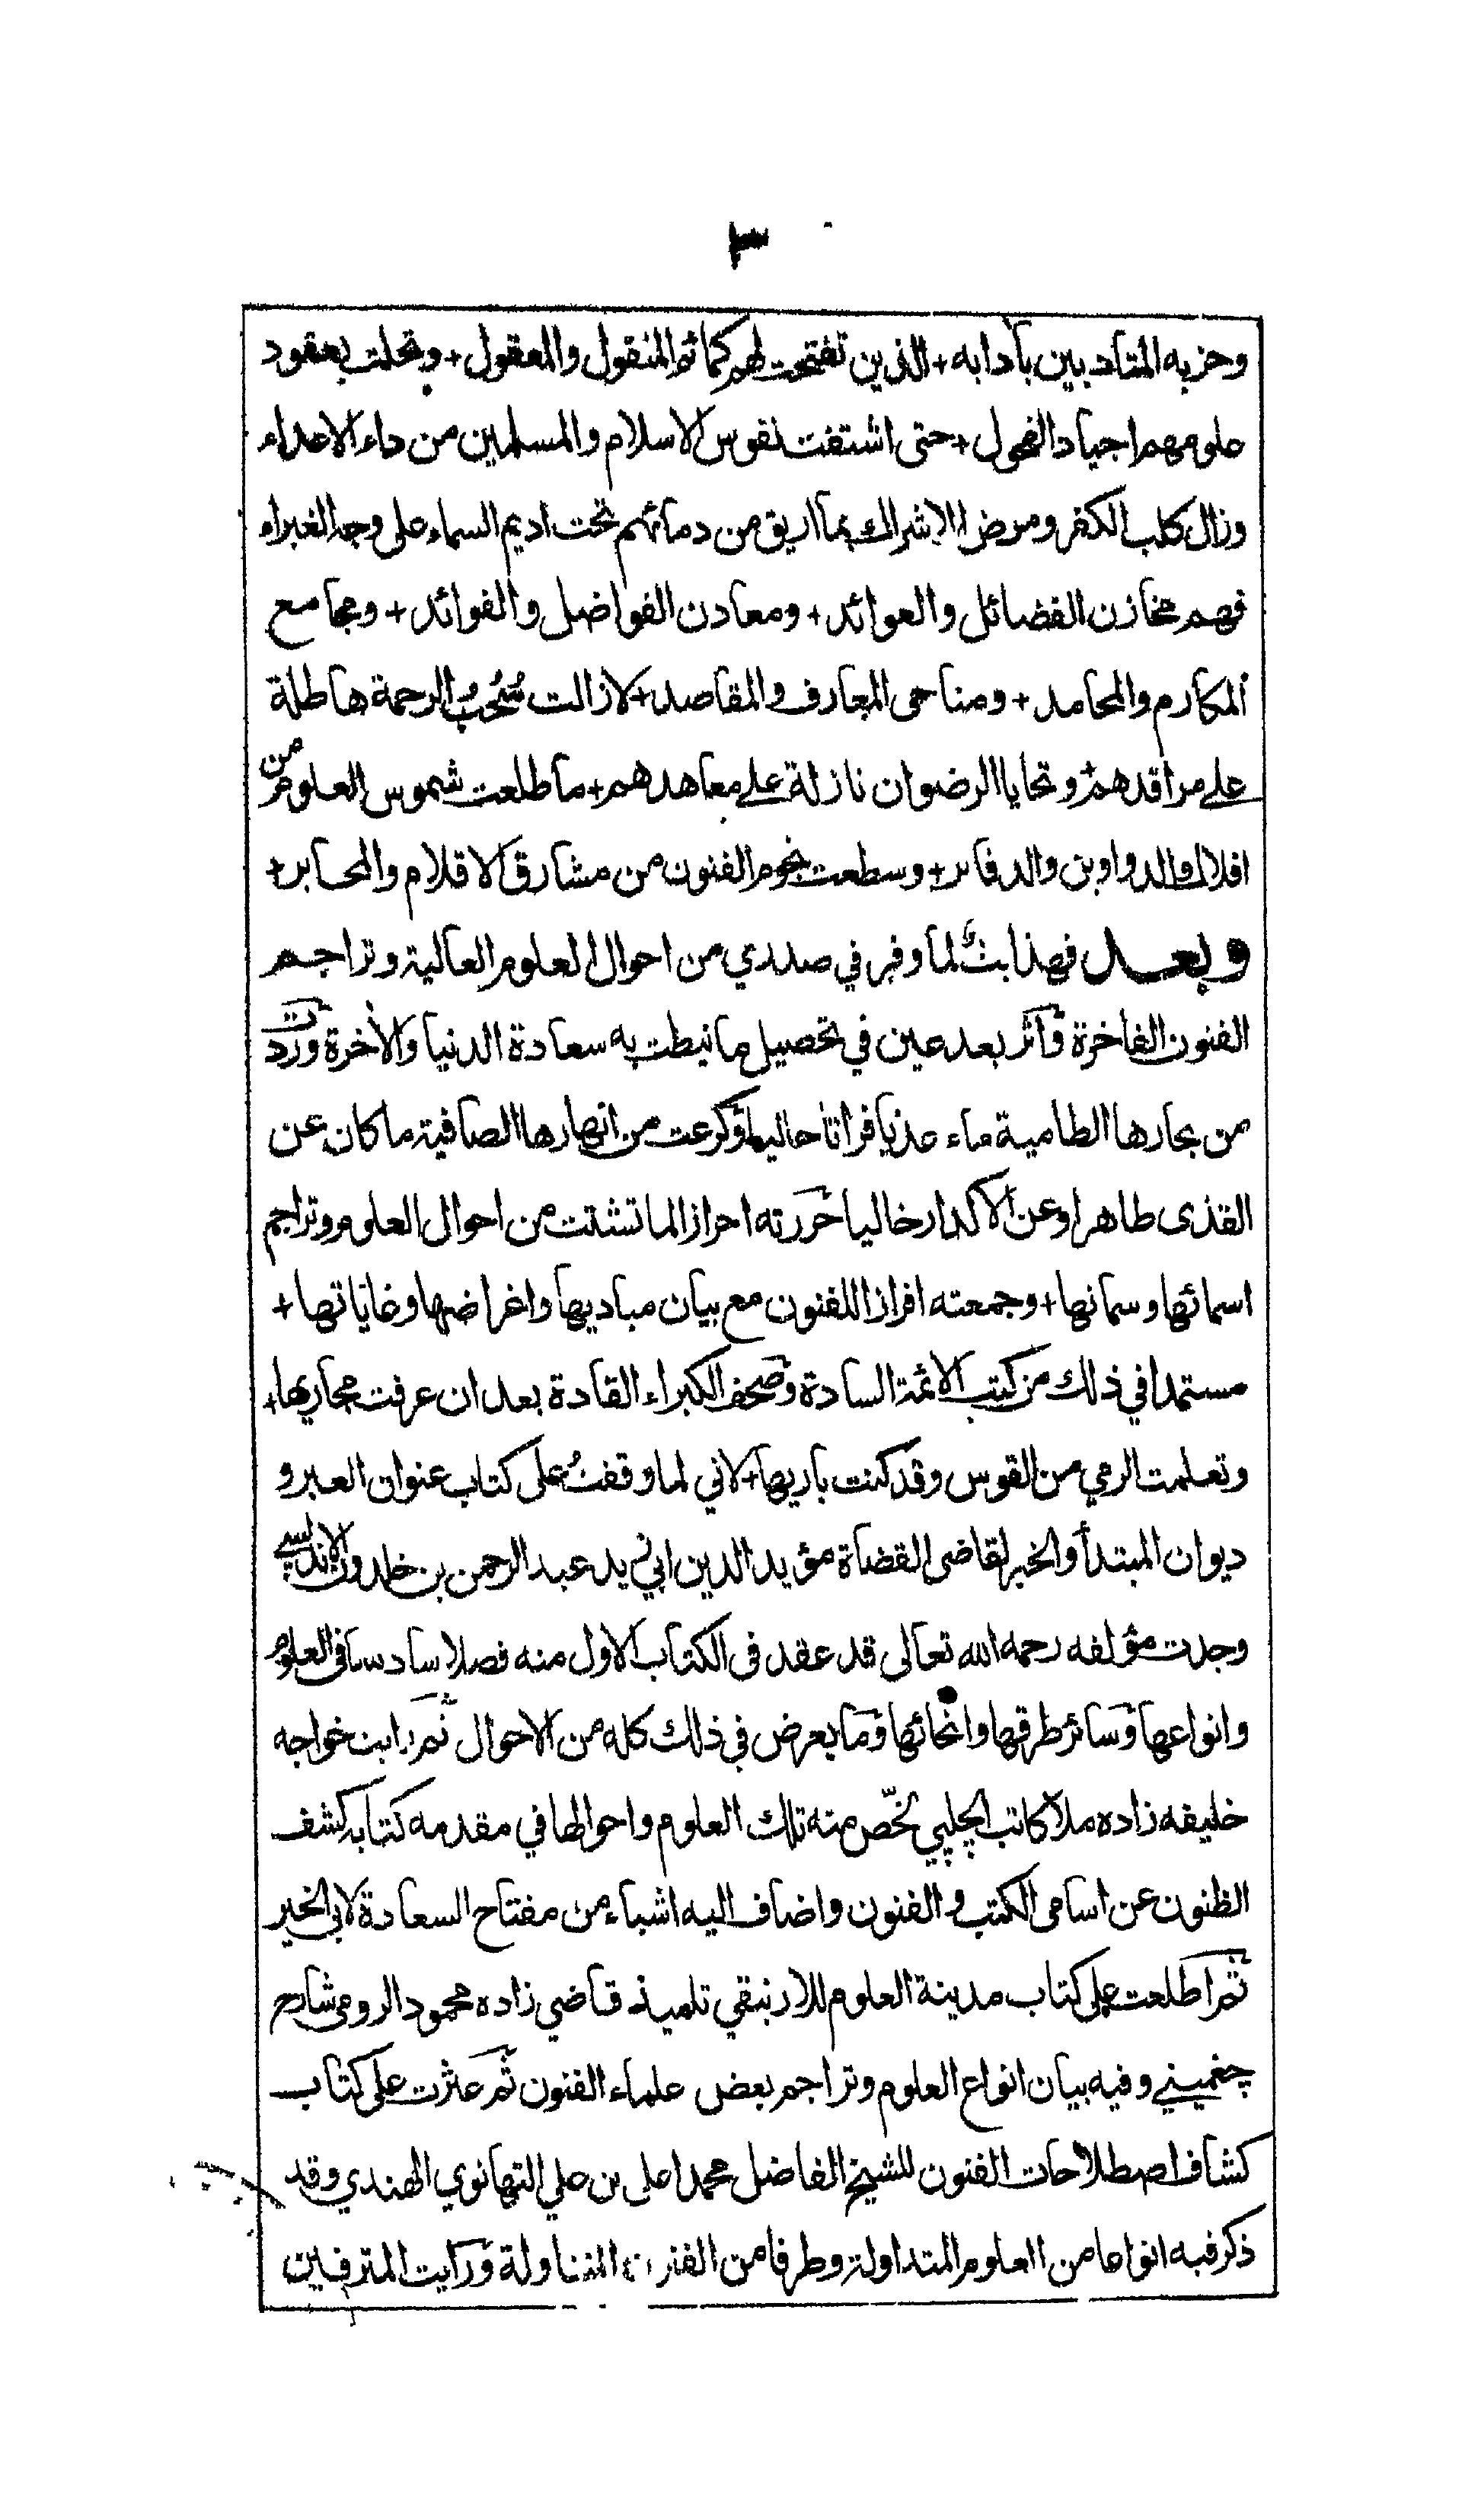 ٣
وحزبه المتادبين بآدابه + الذين تفتحت لهم كمائم المنقول والمعقول + وتحلت بعقود
علومهم اجياد الفحول + حتى اشتفت نفوس الاسلام والمسلمين من داء الاعداء
وزال كلب الكفر ومرض الاشراك بما اريق من دمائهم تحت اديم السماء على وجه الغبراء
فهم مخازن الفضائل والعوائد + ومعادن الفواضل والفوائد + ومجامع
المكارم والمحامد + ومناحى المعارف والمقاصد + لازالت سُحُبُ الرحمة هاطلة
على مراقدهم وتحايا الرضوان نازلة على معاهدهم + ما طلعت شموس العلوم من
افلاك الدواوين والدفاتر + وسطعت نجوم الفنون من مشارق الاقلام والمحابر +
وبعد فهذا بثٌ لما وقر في صدري من احوال العلوم العالية وتراجم
الفنون الفاخرة وآثر بعد عين في تحصيل ما نيطت به سعادة الدنيا والآخرة وَرَدتُ
من بحارها الطامية ماء عذبا فراتا حاليا وكرعت من انهارها الصافية ما كان عن
القذى طاهرا وعن الاكدار خاليا حَررته احرازا لما تشتت من احوال العلوم وتراجم
اسمائها وسماتها + وجمعته افرازا للفنون مع بيان مباديها واغراضها وغاياتها +
مستمدا في ذلك من كتب الائمة السادة وصحف الكبراء القادة بعد ان عرفت مجاريها +
وتعلمت الرمي من القوس وقد كنت باريها + لاني لما وقفتُ على كتاب عنوان العبر و
ديوان المبتدأ والخبر لقاضى القضاة مؤيد الدين ابي زيد عبد الرحمن بن خلدون الاندلسي
وجدت مؤلفه رحمه الله تعالى قد عقد فى الكتاب الاول منه فصلا سادسا فى العلوم
وانواعها وَسائر طرقها وانحائها وَما يعرض في ذلك كله من الاحوال ثم رايت خواجه
خليفه زاده ملا كاتب الچلپي لخّص منه تلك العلوم واحوالها في مقدمه كتابه كشف
الظنون عن اسامى الكتب و الفنون واضاف اليه اشياء من مفتاح السعادة لابى الخير
ثم اطلعت على كتاب مدينة العلوم للارنيقي تلميذ قاضي زاده محمود الرومى شارح
چغميني وفيه بيان انواع العلوم وتراجم بعض علماء الفنون ثم عثرت على كتاب
كشاف اصطلاحات الفنون للشيخ الفاضل محمد اعلى بن علي التهانوي الهندي وقد
ذكر فيه انواعا من العلوم المتداولة وطرفا من الفنون المتناولة وَرايت المترفين